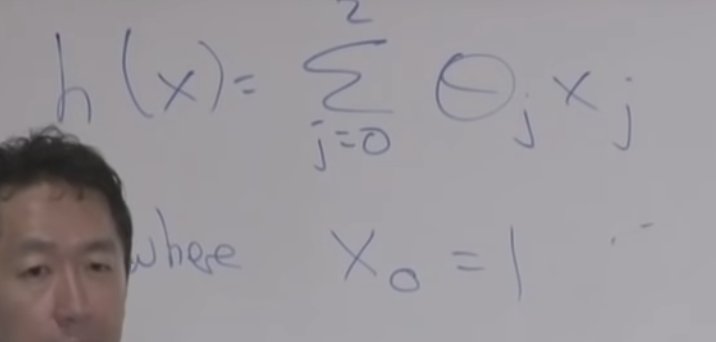 h(x) = 2∑j=0 θj xj
where x0 = 1